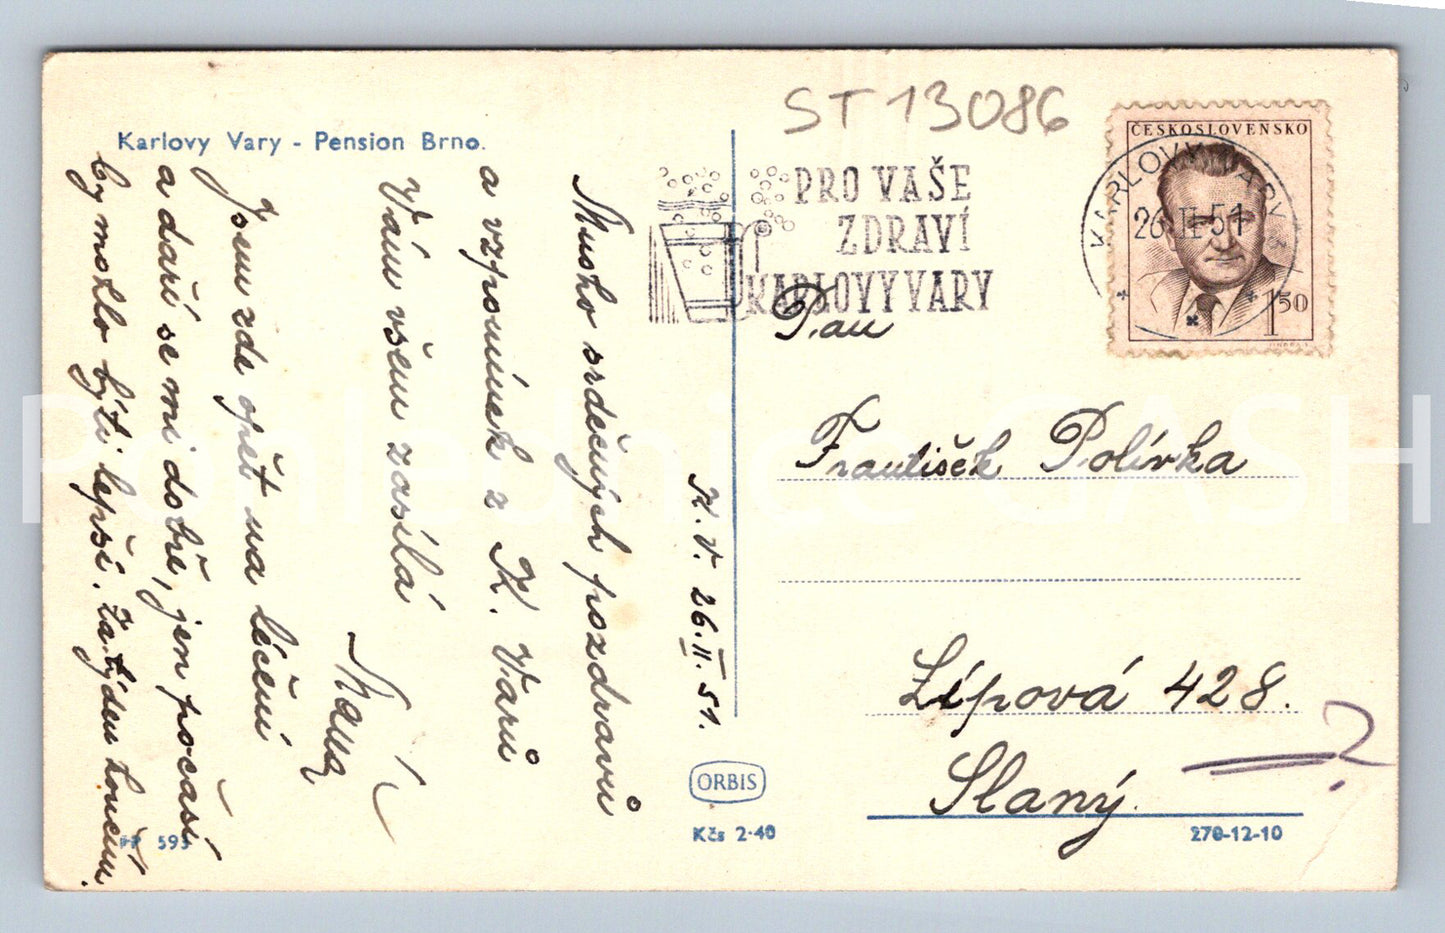 ST 13086
Karlovy Vary - Pension Brno.
PRO VAŠE
ZDRAVÍ
KARLOVY VARY
ČESKOSLOVENSKO
KARLOVY VARY 1
26.II.51
1.50
K. V. 26.II.51.
Mnoho srdečných pozdravů
a vzpomínek z K. Varů
Vám všem zasílá
Jsem zde opět na léčení
a daří se mi dobře, jen počasí
by mohlo býti lepší. Za týden končím.
Pan
František Polívka
Lípová 428.
Slaný.
?
ORBIS
Kčs 2·40
270-12-10
FP 595
Pohlednice GASH